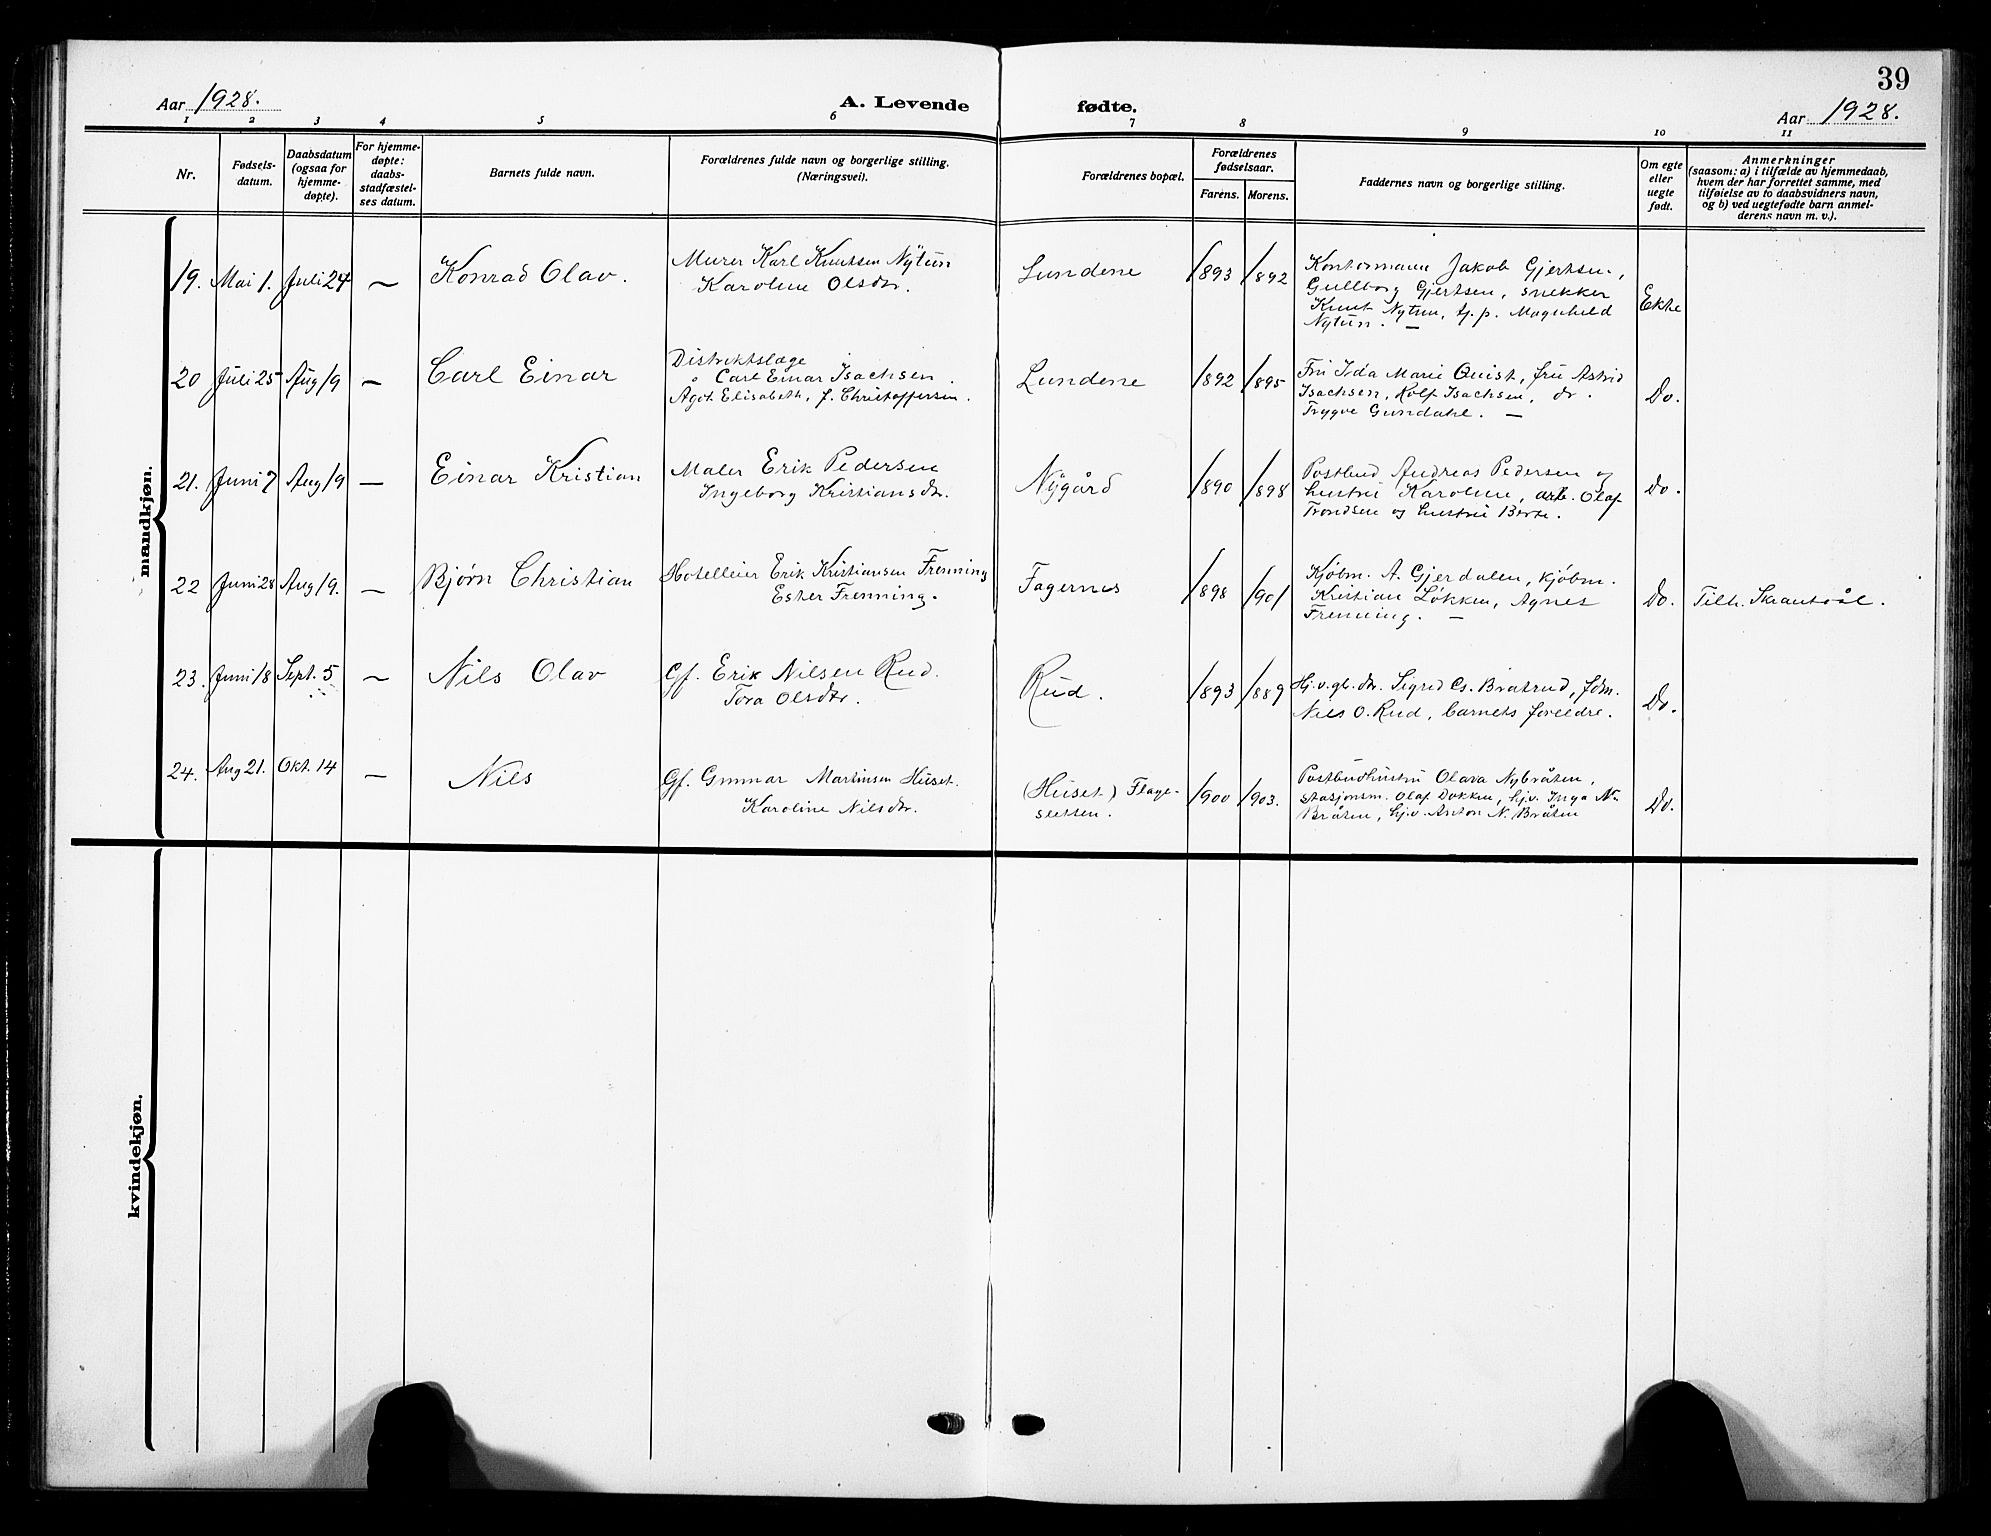 39
Aar 1928.
A. Levende fødte.
Aar 1928.
1 2 3 4 5 6 7 8 9 10 11
Nr.
Fødsels-
datum.
Daabsdatum
(ogsaa for
hjemme-
døpte).
For hjemme-
døpte:
daabs-
stadfæstel-
ses datum.
Barnets fulde navn.
Forældrenes fulde navn og borgerlige stilling.
(Næringsvei).
Forældrenes bopæl.
Forældrenes
fødselsaar.
Farens. Morens.
Faddernes navn og borgerlige stilling.
Om egte
eller
uegte
født.
Anmerkninger
(saasom: a) i tilfælde av hjemmedaab,
hvem der har forrettet samme, med
tilføielse av to daabsvidners navn,
og b) ved uegtefødte barn anmel-
derens navn m. v.).
mandkjøn.
19. Mai 1. Juli 24 — Konrad Olav.
Murer Karl Knutsen Nytun
Karoline Olsdtr.
Lundene 1893 1892
Kontormann Jakob Gjertsen,
Gullborg Gjertsen, snekker
Knut Nytun, tj. p. Magnhild
Nytun. —
Ekte
20 Juli 25 Aug 19 — Carl Einar
Distriktslæge
Carl Einar Isachsen.
Ågot Elisabeth, f. Christoffersen.
Lundene 1892 1895
Fru Ida Marie Quist, fru Astrid
Isachsen, Rolf Isachsen, dr.
Trygve Gundahl. —
Do.
21. Juni 7 Aug 19 — Einar Kristian
Maler Erik Pedersen
Ingeborg Kristiansdtr.
Nygård 1890 1898
Postbud Andreas Pedersen og
hustru Karoline, arb. Olaf
Trondsen og hustru Berte.
Do.
22 Juni 28 Aug 19. — Bjørn Christian
Hotelleier Erik Kristiansen Frenning
Ester Frenning.
Fagernes 1898 1901
Kjøbm. A. Gjerdalen, kjøbm.
Kristian Løkken, Agnes
Frenning. —
Do. Tilh. Skrautvål.
23. Juni 18 Sept. 5 — Nils Olav
Gf. Erik Nilsen Rud.
Tora Olsdtr.
Rud. 1893 1889
Hj.v. gb. dtr. Sigrid Cs. Bratrud, fdm.
Nils O. Rud, barnets foreldre.
Do.
24. Aug 21. Okt. 14 — Nils
Gf. Gunnar Martinsen Huset.
Karoline Nilsdtr.
(Huset) Flage-
sletten. 1900 1903.
Postbudhustru Olava Nybråten,
stasjonsm. Olaf Dokken, hj.v. Inga N.
Bråten, hj.v. Anton N. Bråten
Do.
kvindekjøn.